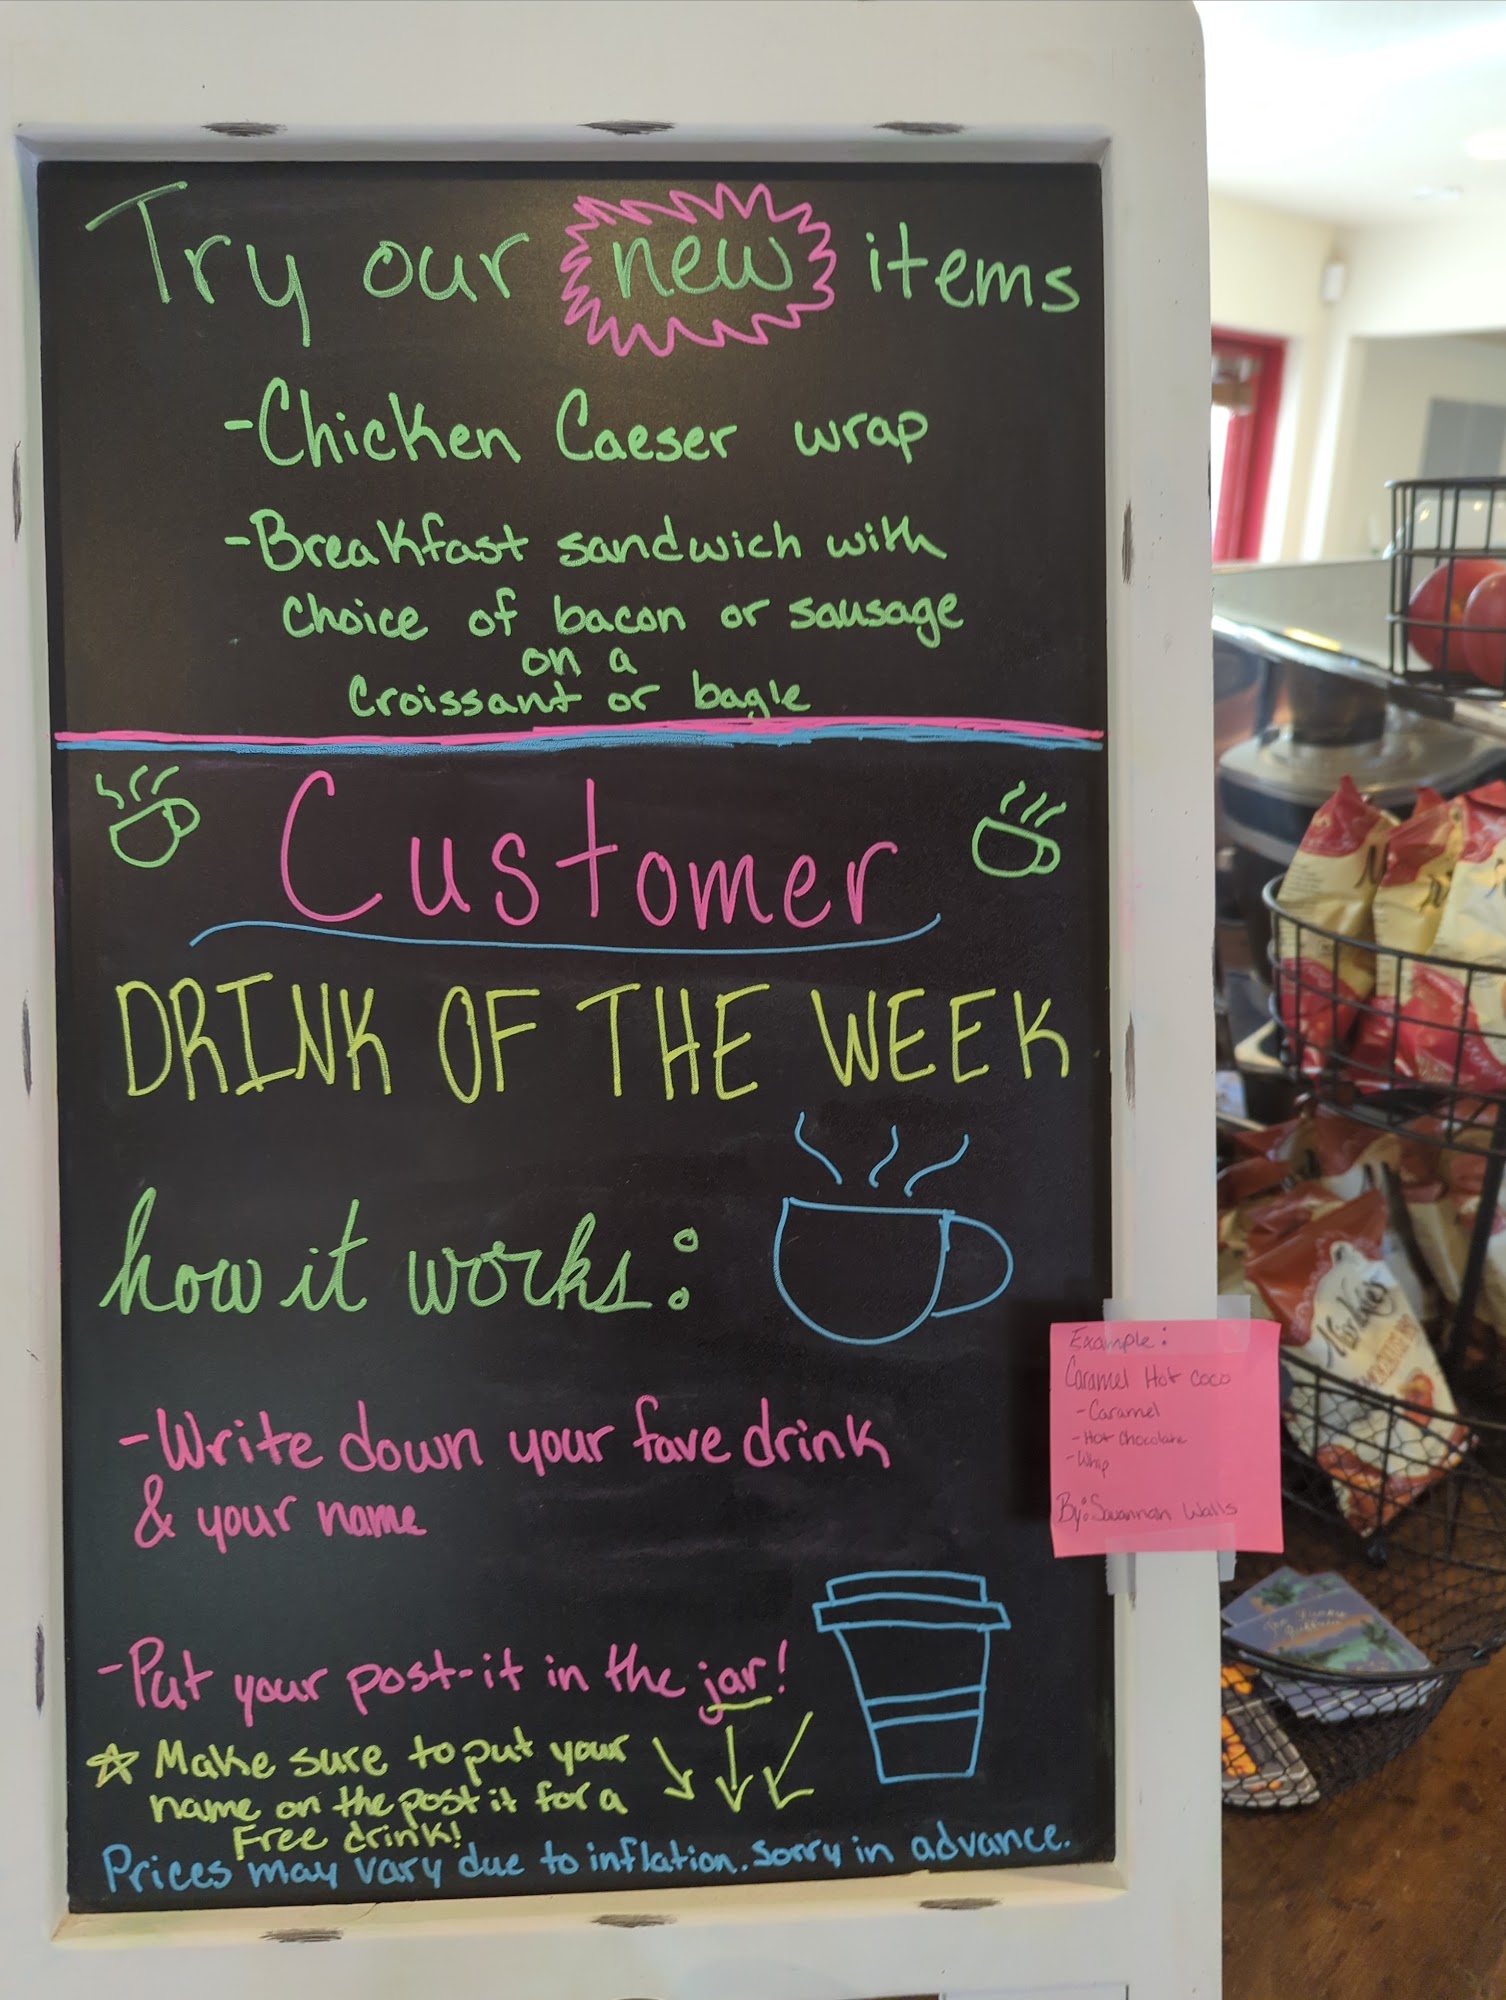 Try our new items
-Chicken Caeser wrap
-Breakfast sandwich with
choice of bacon or sausage
on a
Croissant or bagle
Customer
DRINK OF THE WEEK
how it works:
-Write down your fave drink
& your name
-Put your post-it in the jar!
Make sure to put your
name on the post it for a
Free drink!
Prices may vary due to inflation. Sorry in advance.
Example:
Caramel Hot coco
-Caramel
-Hot Chocolate
-Whip
By: Savannah Walls